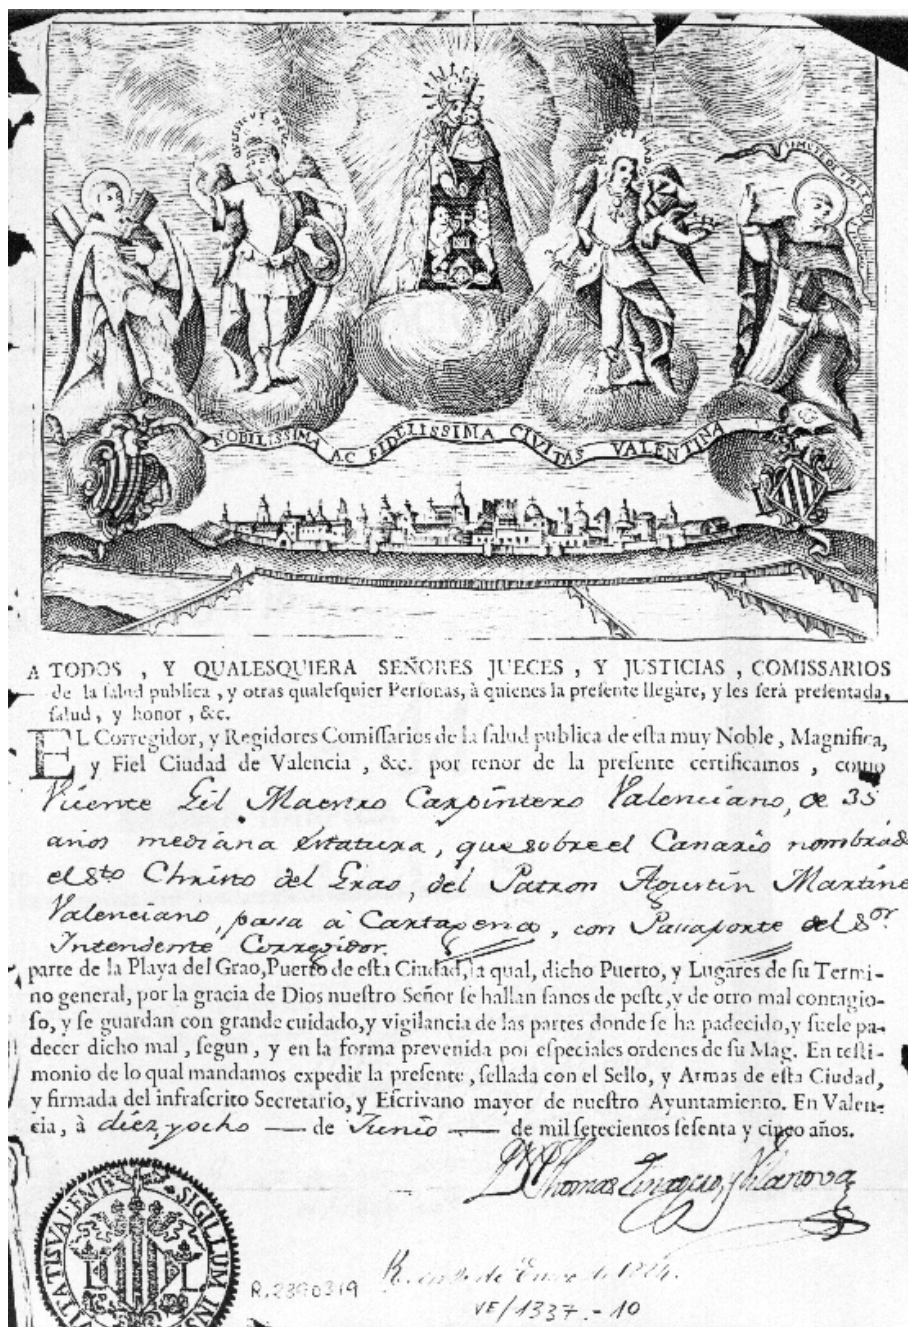 QUIS SICUT DEUS
TIMETE DEUM
NOBILISSIMA AC FIDELISSIMA CIVITAS VALENTINA
A TODOS , Y QUALESQUIERA SEÑORES JUECES , Y JUSTICIAS , COMISSARIOS
de la ſalud publica , y otras qualeſquier Perſonas, à quienes la preſente llegare, y les ſerà preſentada,
ſalud , y honor , &c.
EL Corregidor, y Regidores Comiſſarios de la ſalud publica de eſta muy Noble , Magnifica,
y Fiel Ciudad de Valencia , &c. por tenor de la preſente certificamos , como
Vicente Gil Maestro Carpintero Valenciano, de 35
años mediana estatura, que sobre el Canario nombrado
el Sto Christo del Grao, del Patron Agustin Martine
Valenciano, passa à Cartagena, con Passaporte del Sor.
Intendente Corregidor.
parte de la Playa del Grao, Puerto de eſta Ciudad, la qual, dicho Puerto, y Lugares de ſu Termi-
no general, por la gracia de Dios nueſtro Señor ſe hallan ſanos de peſte, y de otro mal contagio-
ſo, y ſe guardan con grande cuidado, y vigilancia de las partes donde ſe ha padecido, y ſuele pa-
decer dicho mal , ſegun , y en la forma prevenida por eſpeciales ordenes de ſu Mag. En teſti-
monio de lo qual mandamos expedir la preſente , ſellada con el Sello, y Armas de eſta Ciudad,
y firmada del infraſcrito Secretario, y Eſcrivano mayor de nueſtro Ayuntamiento. En Valen-
cia, à diez, y ocho — de Junio — de mil ſetecientos ſeſenta y cinco años.
Thomas Tinagero, y Vilanova
SIGILLUM INS
ITATIS VALENT
L L
R.2390319
de Enero de
VE/1337.-10